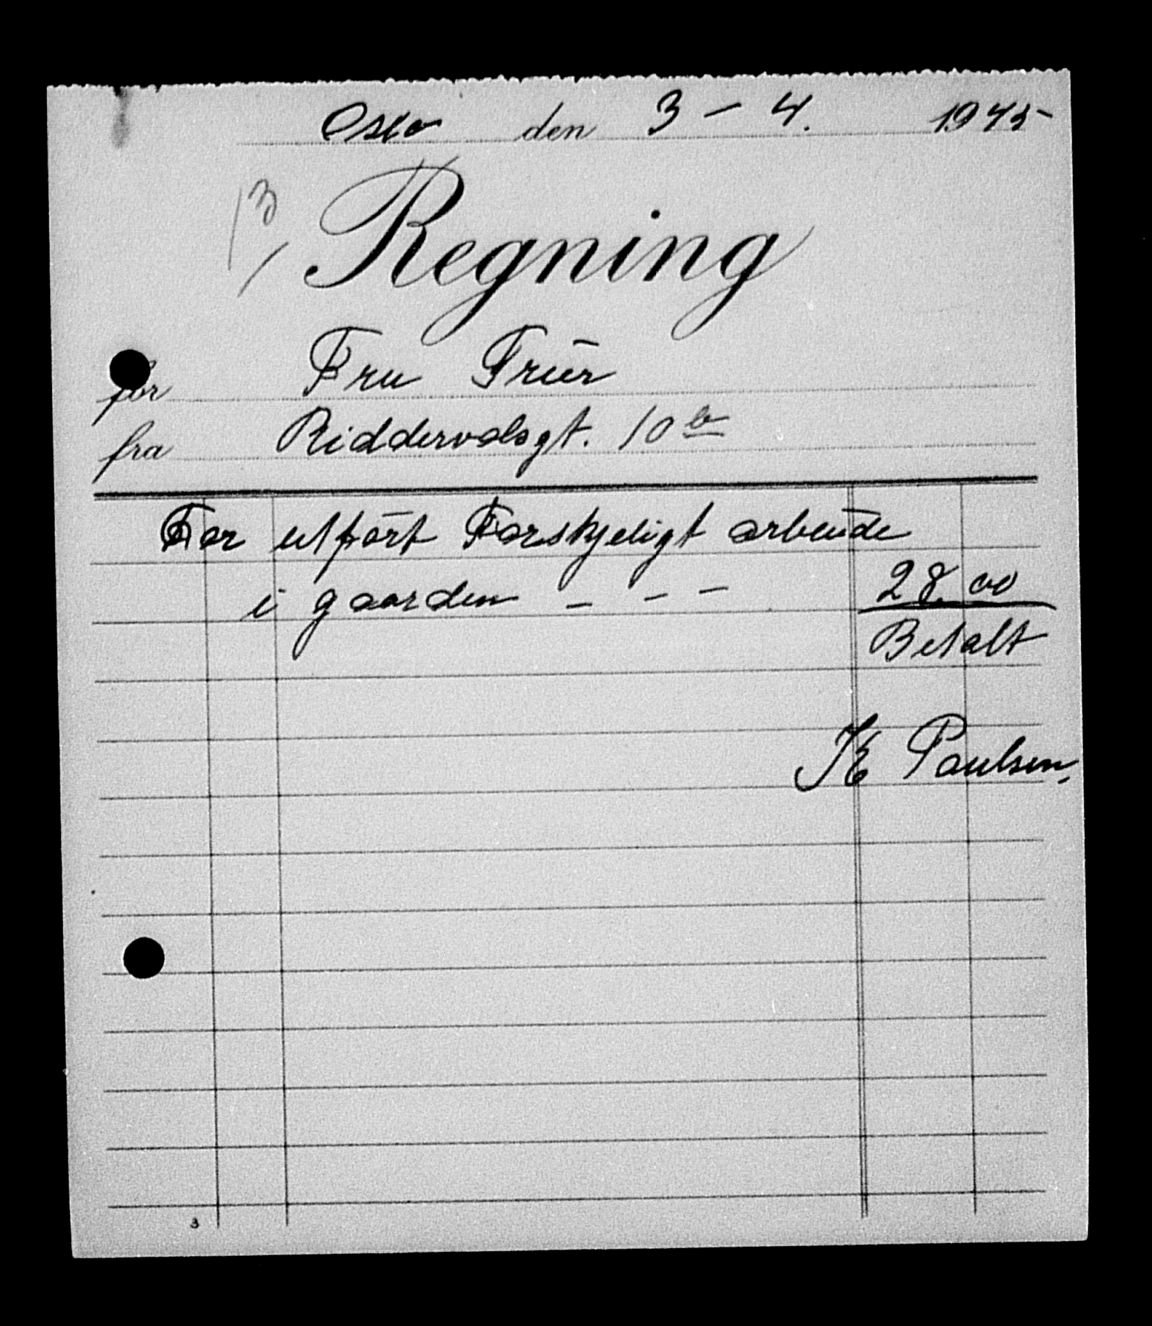 Oslo den 3 - 4. 1945
13
Regning
for Fru Friis
fra Riddervolsgt. 10 b
For utført Forskjeligt arbeide
i gaarden - - - 28.00
Betalt
K Paulsen.
3